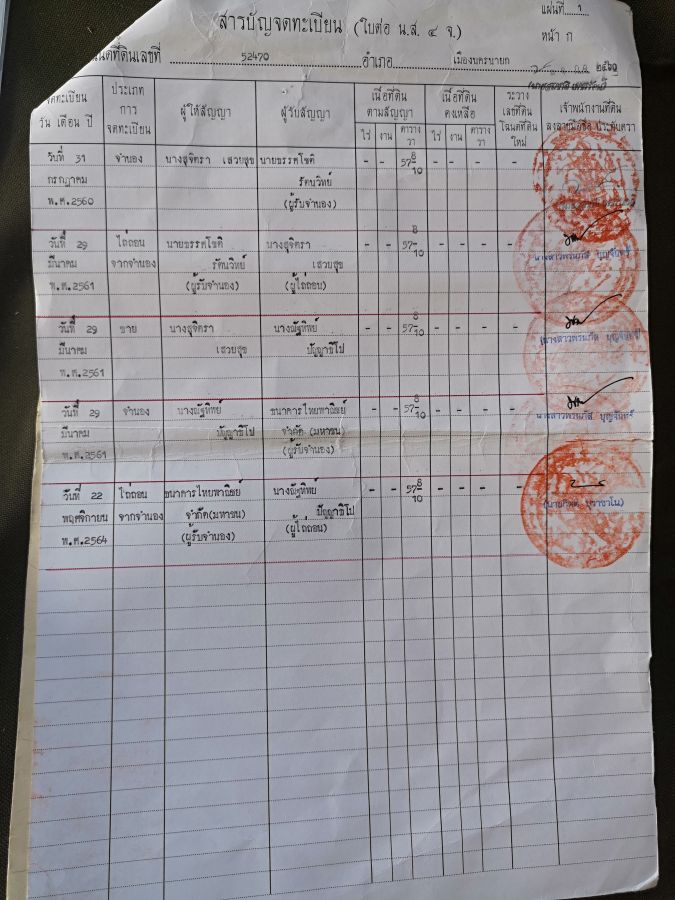 แผ่นที่ 1
สารบัญจดทะเบียน (ใบต่อ น.ส. ๔ จ.)
หน้า ก
ที่ดินเลขที่ 52470 อำเภอ เมืองนครนายก
จดทะเบียน วัน เดือน ปี
ประเภท การ จดทะเบียน
ผู้ให้สัญญา
ผู้รับสัญญา
เนื้อที่ดิน ตามสัญญา
ไร่ งาน ตาราง วา
เนื้อที่ดิน คงเหลือ
ไร่ งาน ตาราง วา
ระวาง เลขที่ดิน โฉนดที่ดิน ใหม่
เจ้าพนักงานที่ดิน ลงลายมือชื่อ ประทับตรา
วันที่ 31 จำนอง นางสุจิตรา เสวยสุข นายธรรศโชติ - - 57 8/10 - - - -
กรกฎาคม รัตนวิทย์
พ.ศ.2560 (ผู้รับจำนอง)
วันที่ 29 ไถ่ถอน นายธรรศโชติ นางสุจิตรา - - 57 8/10 - - - -
มีนาคม จากจำนอง รัตนวิทย์ เสวยสุข
พ.ศ.2561 (ผู้รับจำนอง) (ผู้ไถ่ถอน)
วันที่ 29 ขาย นางสุจิตรา นางณัฐทิพย์ - - 57 8/10 - - - -
มีนาคม เสวยสุข ปัญญาธิโป
พ.ศ.2561
วันที่ 29 จำนอง นางณัฐทิพย์ ธนาคารไทยพาณิชย์ - - 57 8/10 - - - -
มีนาคม ปัญญาธิโป จำกัด (มหาชน)
พ.ศ.2561 (ผู้รับจำนอง)
วันที่ 22 ไถ่ถอน ธนาคารไทยพาณิชย์ นางณัฐทิพย์ - - 57 8/10 - - - -
พฤศจิกายน จากจำนอง จำกัด(มหาชน) ปัญญาธิโป
พ.ศ.2564 (ผู้รับจำนอง) (ผู้ไถ่ถอน)